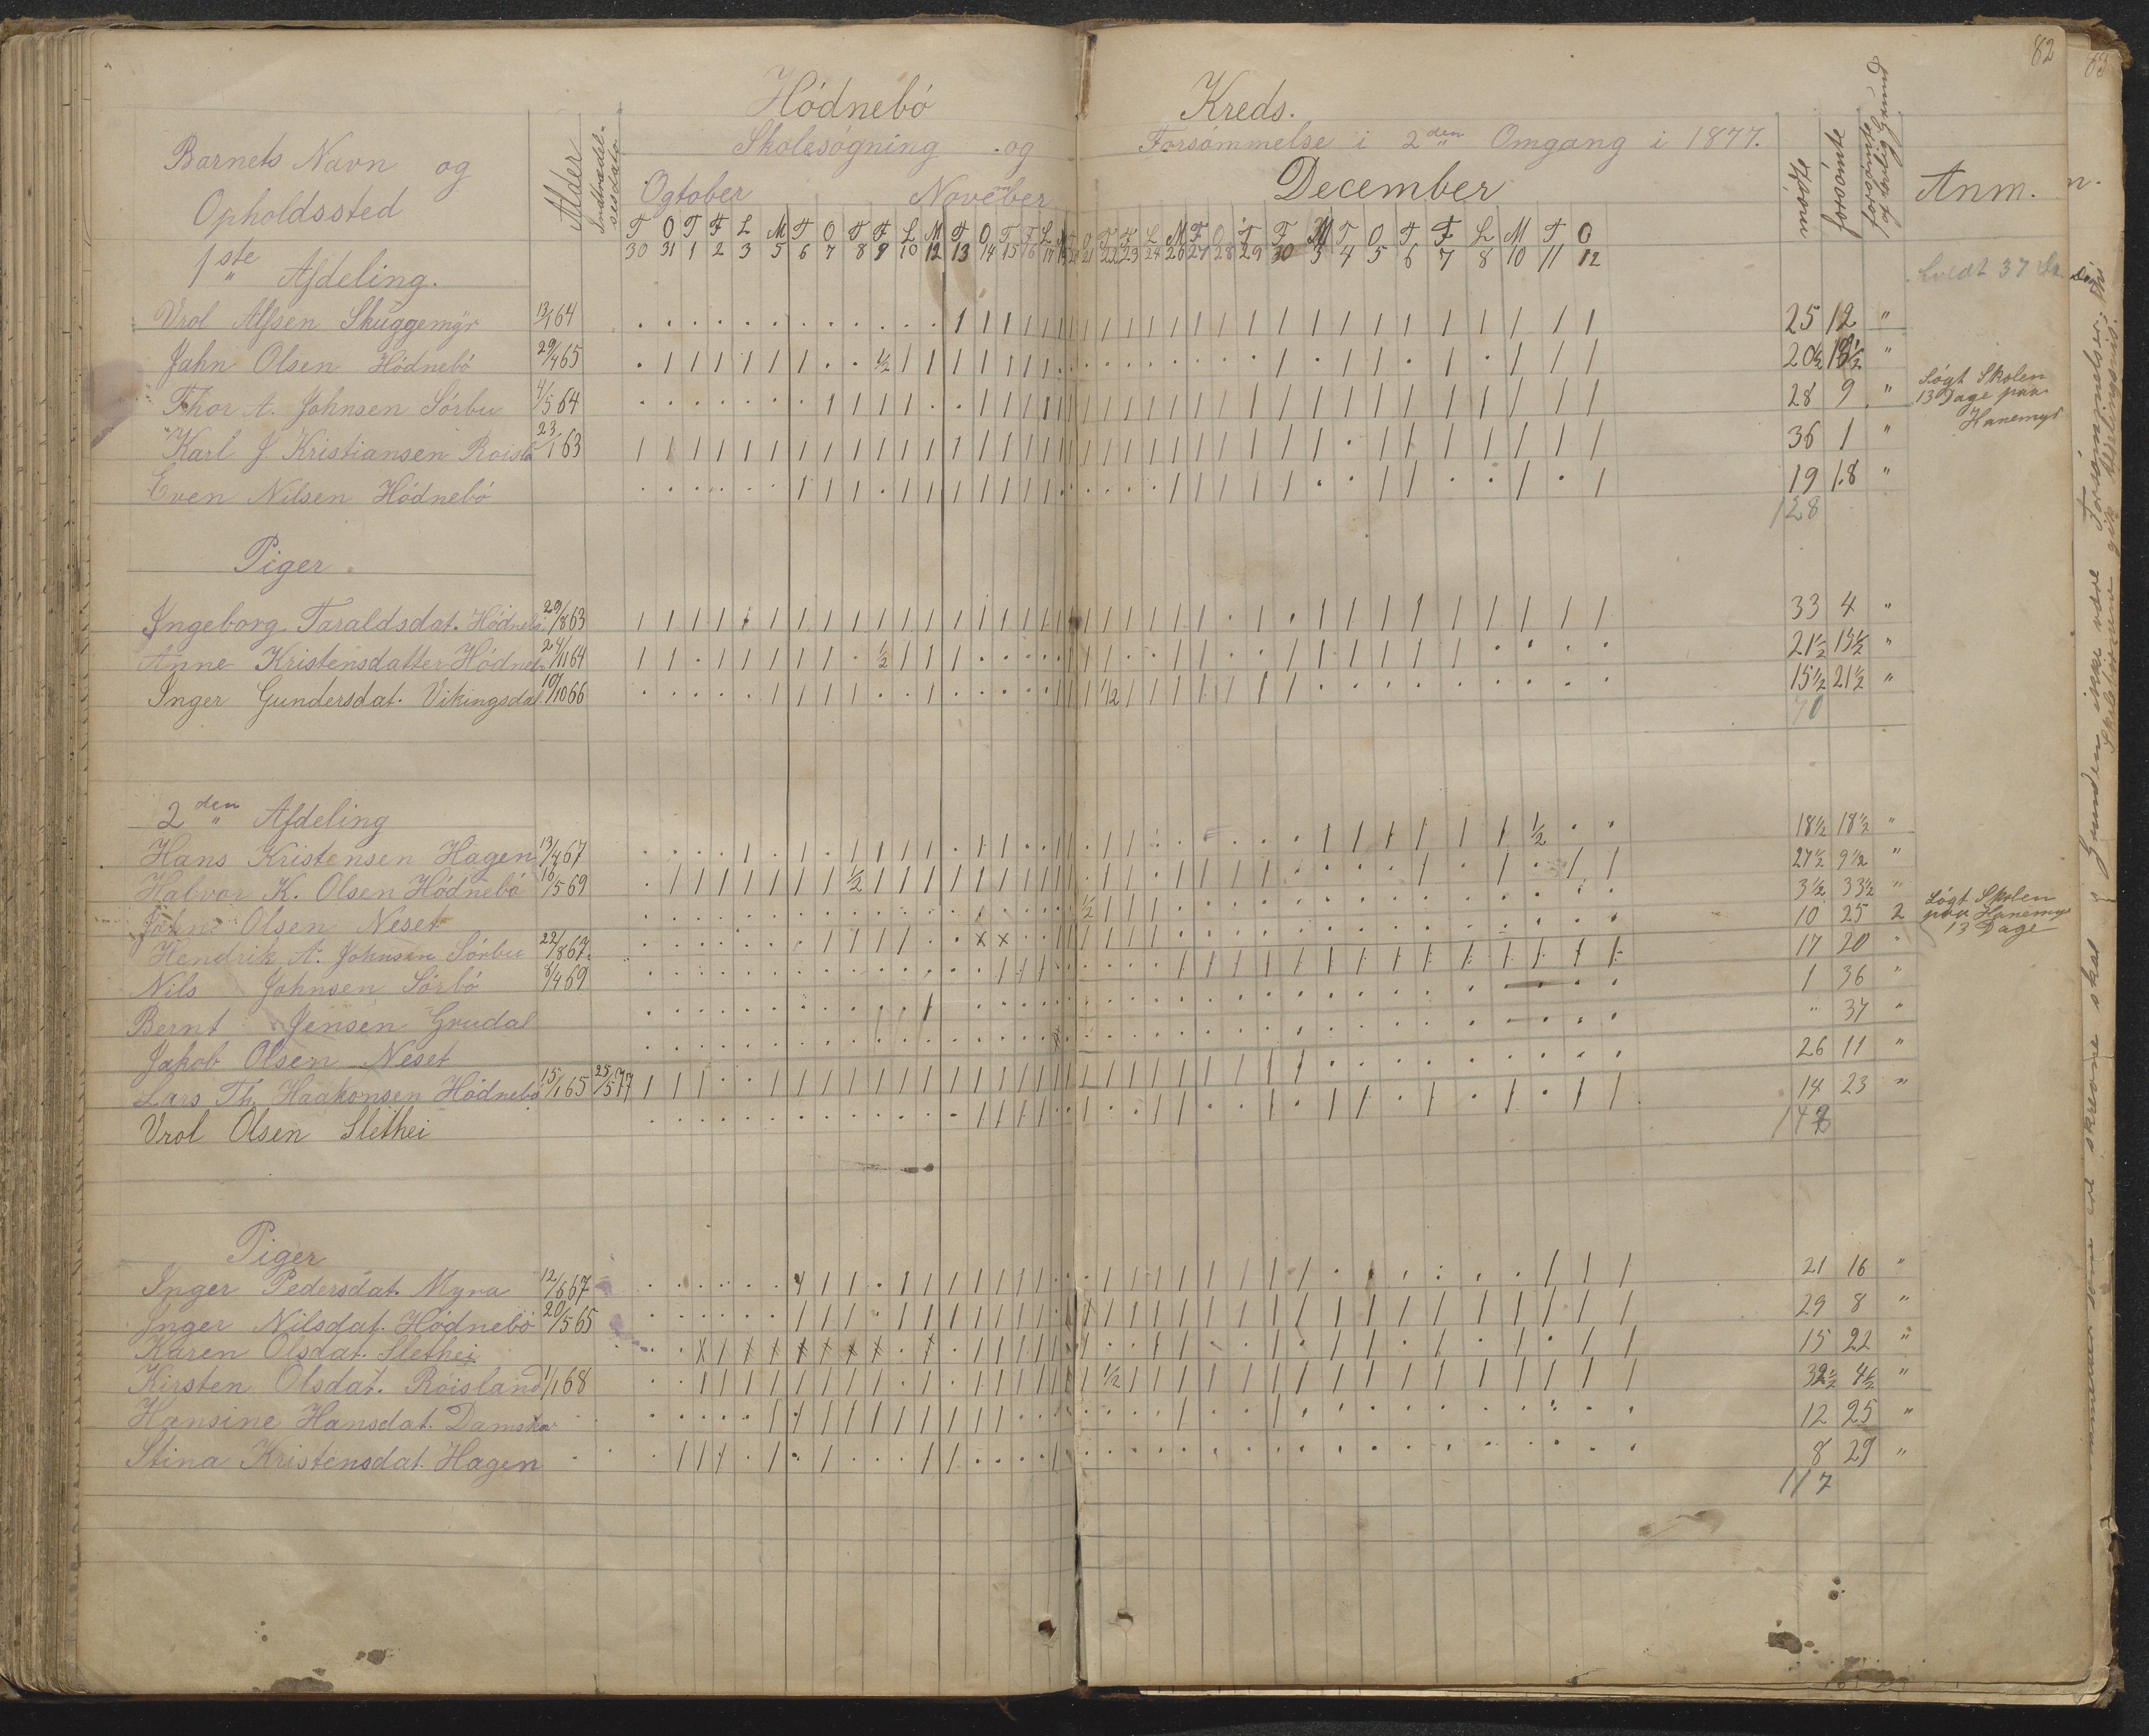 82
83
Hódnebó Kreds.
Barnets Navn og Opholdssted
Alder
Indtrædelsesdato
Skolesógning og Forsómmelse i 2den Omgang i 1877.
mødte
forsómte
forsómte af lovlig Grund
Anm.
Ogtober November December
T O T F L M T O T F L M T O T F L M T O T F L M T O T F M T O T F L M T O
30 31 1 2 3 5 6 7 8 9 10 12 13 14 15 16 17 19 20 21 22 23 24 26 27 28 29 30 3 4 5 6 7 8 10 11 12
1ste Afdeling.
holdt 37
Vrol Alfsen Skuggemyr 13/1 64 25 12 "
Jahn Olsen Hódnebó 29/4 65 20½ 16½ "
Thor A. Johnsen Sórbu 4/5 64 28 9 " Sógt Skolen 13 Dage paa Hanemyr
Karl J. Kristiansen Roisla 23/1 63 36 1 "
Even Nilsen Hódnebó 19 18 "
128
Piger.
Ingeborg Taraldsdat. Hódnebó 29/8 63 33 4 "
Anne Kristensdatter Hódneb 24/11 64 21½ 15½ "
Inger Gundersdat. Vikingsdal 10/10 66 15½ 21½ "
70
2den Afdeling
Hans Kristensen Hagen 13/4 67 18½ 18½ "
Halvor K. Olsen Hódnebó 16/5 69 27½ 9½ "
John Olsen Neset 3½ 33½ "
Hendrik A. Johnsen Sórbu 22/8 67. 10 25 2 Sógt Skolen paa Hanemyr 13 Dage
Nils Johnsen Sórbó 8/4 69 17 20 "
Bernt Jensen Grudal 1 36 "
Jakob Olsen Neset " 37 "
Lars Th. Haakonsen Hódnebó 15/1 65 25/5 77 26 11 "
Vrol Olsen Slethei 14 23 "
148
Piger
Inger Pedersdat. Myra 12/6 67 21 16 "
Inger Nilsdat. Hódnebó 20/5 65 29 8 "
Karen Olsdat. Slethei 15 22 "
Kirsten Olsdat. Róisland 1/1 68 32½ 4½ "
Hansine Hansdat. Damska 12 25 "
Stina Kristensdat. Hagen 8 29 "
117
som ere skrevne skal
Grunden ikke være Forsómmelser